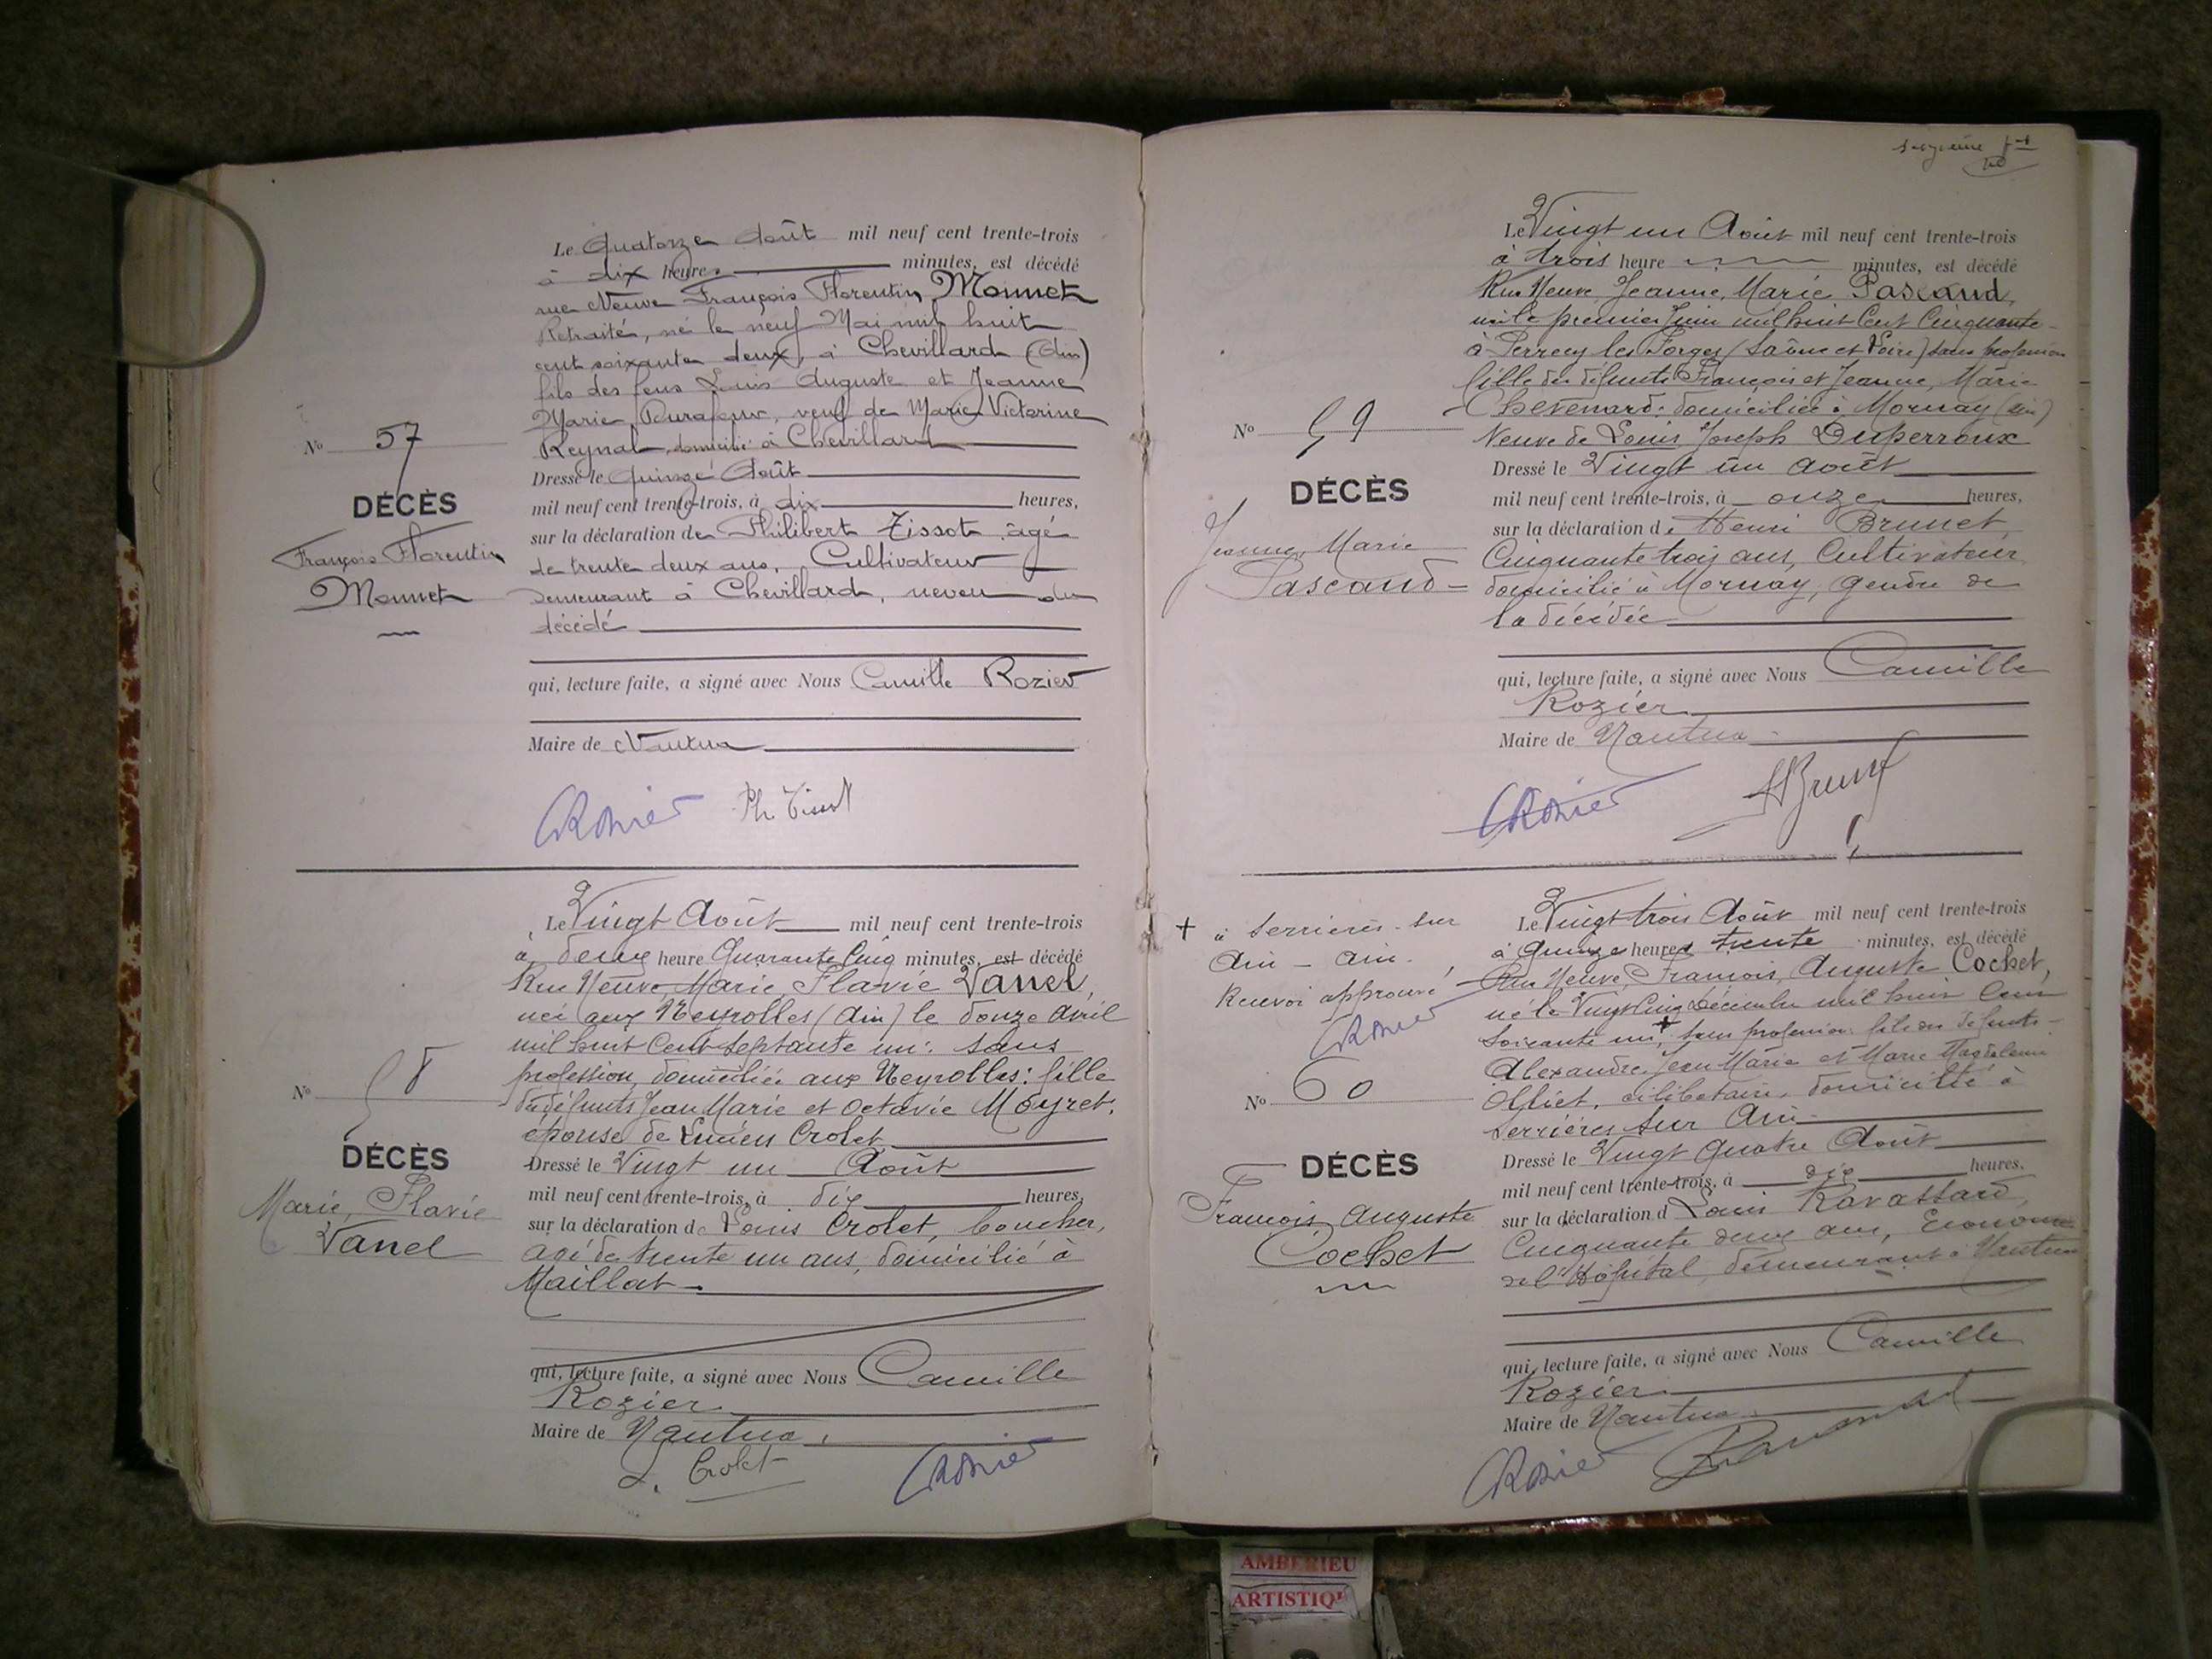 Le Quatorze Août mil neuf cent trente-trois
à dix heures minutes, est décédé
rue Neuve François Florentin Monnet
Retraité, né le neuf Mai mil huit
cent soixante deux, à Chevillard (Ain)
fils des feus Louis Auguste et Jeanne
Marie Durafour, veuf de Marie Victorine
Reynal, domicilié à Chevillard
Nº 57
DÉCÈS
François Florentin
Monnet
Dressé le quinze Août
mil neuf cent trente-trois, à dix heures,
sur la déclaration de Philibert Tissot âgé
de trente deux ans, Cultivateur
demeurant à Chevillard, neveu du
décédé
qui, lecture faite, a signé avec Nous Camille Rozier
Maire de Nantua
CRozier Ph Tissot
Le Vingt Août mil neuf cent trente-trois
à deux heure Quarante Cinq minutes, est décédé
Rue Neuve, Marie, Flavie Vanel,
née aux Neyrolles (Ain) le douze Avril
mil huit Cent Septante un: sans
profession, domiciliée aux Neyrolles: fille
des défunts Jean Marie et Octavie Meyret,
épouse de Lucien Crolet
Nº 58
DÉCÈS
Marie, Flavie
Vanel
Dressé le Vingt un Août
mil neuf cent trente-trois, à dix heures,
sur la déclaration de Louis Crolet, boucher,
agé de trente un ans, domicilié à
Maillat
qui, lecture faite, a signé avec Nous Camille
Rozier
Maire de Nantua
L. Crolet CRozier
Le Vingt un Août mil neuf cent trente-trois
à trois heure minutes, est décédé
Rue Neuve, Jeanne, Marie Pascaud,
née le premier Juin mil huit Cent Cinquante
à Perrecy les Forges (Saône et Loire) sans profession
fille des défunts François et Jeanne, Marie
Chevenard: domiciliée à Mornay (Ain)
Veuve de Louis Joseph Duperroux
Nº 59
DÉCÈS
Jeanne, Marie
Pascaud
Dressé le Vingt un août
mil neuf cent trente-trois, à onze heures,
sur la déclaration de Henri Brunet
Cinquante trois ans, Cultivateur
domicilié à Mornay, gendre de
la décédée
qui, lecture faite, a signé avec Nous Camille
Rozier
Maire de Nantua
CRozier HBrunet
+ à Serrières-sur
Ain - Ain.
Renvoi approuvé
CRozier
Le Vingt trois Août mil neuf cent trente-trois
à quinze heures trente minutes, est décédé
Rue Neuve, François, Auguste Cochet,
né le Vingt Cinq Décembre mil huit Cent
soixante un, + sans profession: fils des défunts
Alexandre, Jean Marie et Marie Magdeleine
Olliet, célibataire, domicilié à
Serrières sur Ain
Nº 60
DÉCÈS
François Auguste
Cochet
Dressé le Vingt Quatre Août
mil neuf cent trente-trois, à dix heures,
sur la déclaration d Louis Ravassard,
Cinquante deux ans, Econome
de l'Hôpital, demeurant à Nantua
qui, lecture faite, a signé avec Nous Camille
Rozier
Maire de Nantua
CRozier
AMBERIEU
ARTISTIQU